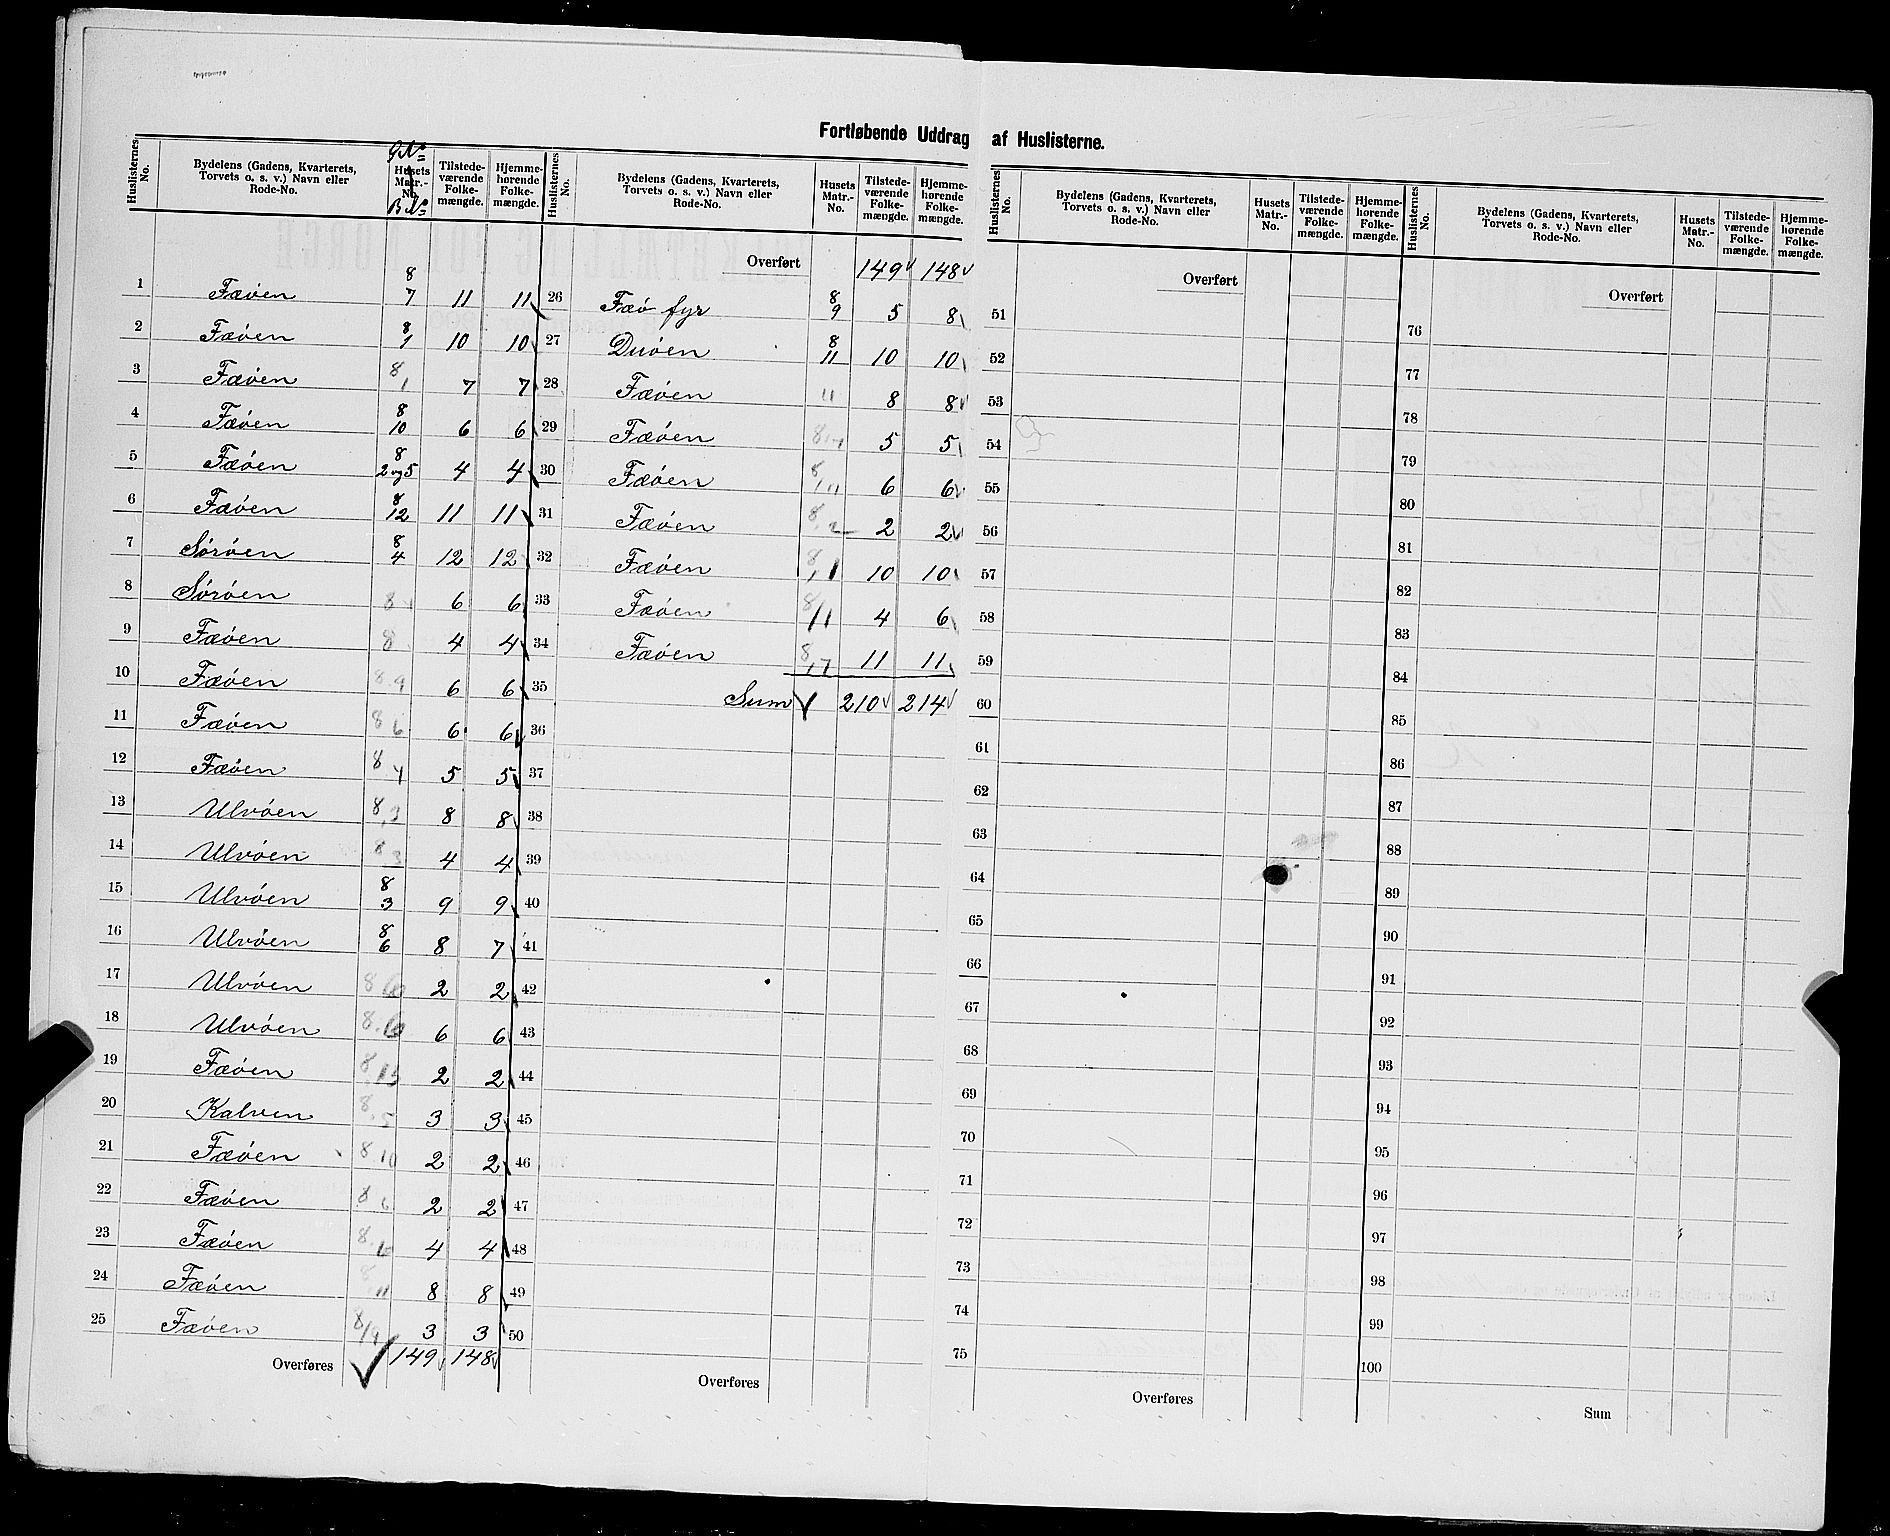 Fortløbende Uddrag af Huslisterne.
Huslisternes No. Bydelens (Gadens, Kvarterets, Torvets o. s. v.) Navn eller Rode-No. G.No Husets Matr.-No. B.No Tilstede-værende Folke-mængde. Hjemme-hørende Folke-mængde.
1 Fæøen 8 7 11 11
2 Fæøen 8 1 10 10
3 Fæøen 8 1 7 7
4 Fæøen 8 10 6 6
5 Fæøen 8 2 og 5 4 4
6 Fæøen 8 12 11 11
7 Sørøen 8 4 12 12
8 Sørøen 8 6 6
9 Fæøen 8 4 4
10 Fæøen 8 9 6 6
11 Fæøen 8 6 6 6
12 Fæøen 8 4 5 5
13 Ulvøen 8,3 8 8
14 Ulvøen 8 3 4 4
15 Ulvøen 8 3 9 9
16 Ulvøen 8 6 8 7
17 Ulvøen 8 2 2
18 Ulvøen 8 6 6
19 Fæøen 8 15 2 2
20 Kalven 8,5 3 3
21 Fæøen 8 10 2 2
22 Fæøen 8 6 2 2
23 Fæøen 8 4 4
24 Fæøen 8 11 8 8
25 Fæøen 8/9 3 3
Overføres 149 148
Huslisternes No. Bydelens (Gadens, Kvarterets, Torvets o. s. v.) Navn eller Rode-No. Husets Matr.-No. Tilstede-værende Folke-mængde. Hjemme-hørende Folke-mængde.
Overført 149 148
26 Fæø fyr 8 9 5 8
27 Duøen 8 11 10 10
28 Fæøen 11 8 8
29 Fæøen 8 5 5
30 Fæøen 8,11 6 6
31 Fæøen 8,2 2 2
32 Fæøen 8,1 10 10
33 Fæøen 8/1 4 6
34 Fæøen 8,7 11 11
35 Sum 210 214
36
37
38
39
40
41
42
43
44
45
46
47
48
49
50
Overføres
Huslisternes No. Bydelens (Gadens, Kvarterets, Torvets o. s. v.) Navn eller Rode-No. Husets Matr.-No. Tilstede-værende Folke-mængde. Hjemme-hørende Folke-mængde.
Overført
51
52
53
54
55
56
57
58
59
60
61
62
63
64
65
66
67
68
69
70
71
72
73
74
75
Overføres
Huslisternes No. Bydelens (Gadens, Kvarterets, Torvets o. s. v.) Navn eller Rode-No. Husets Matr.-No. Tilstede-værende Folke-mængde. Hjemme-hørende Folke-mængde.
Overført
76
77
78
79
80
81
82
83
84
85
86
87
88
89
90
91
92
93
94
95
96
97
98
99
100
Sum